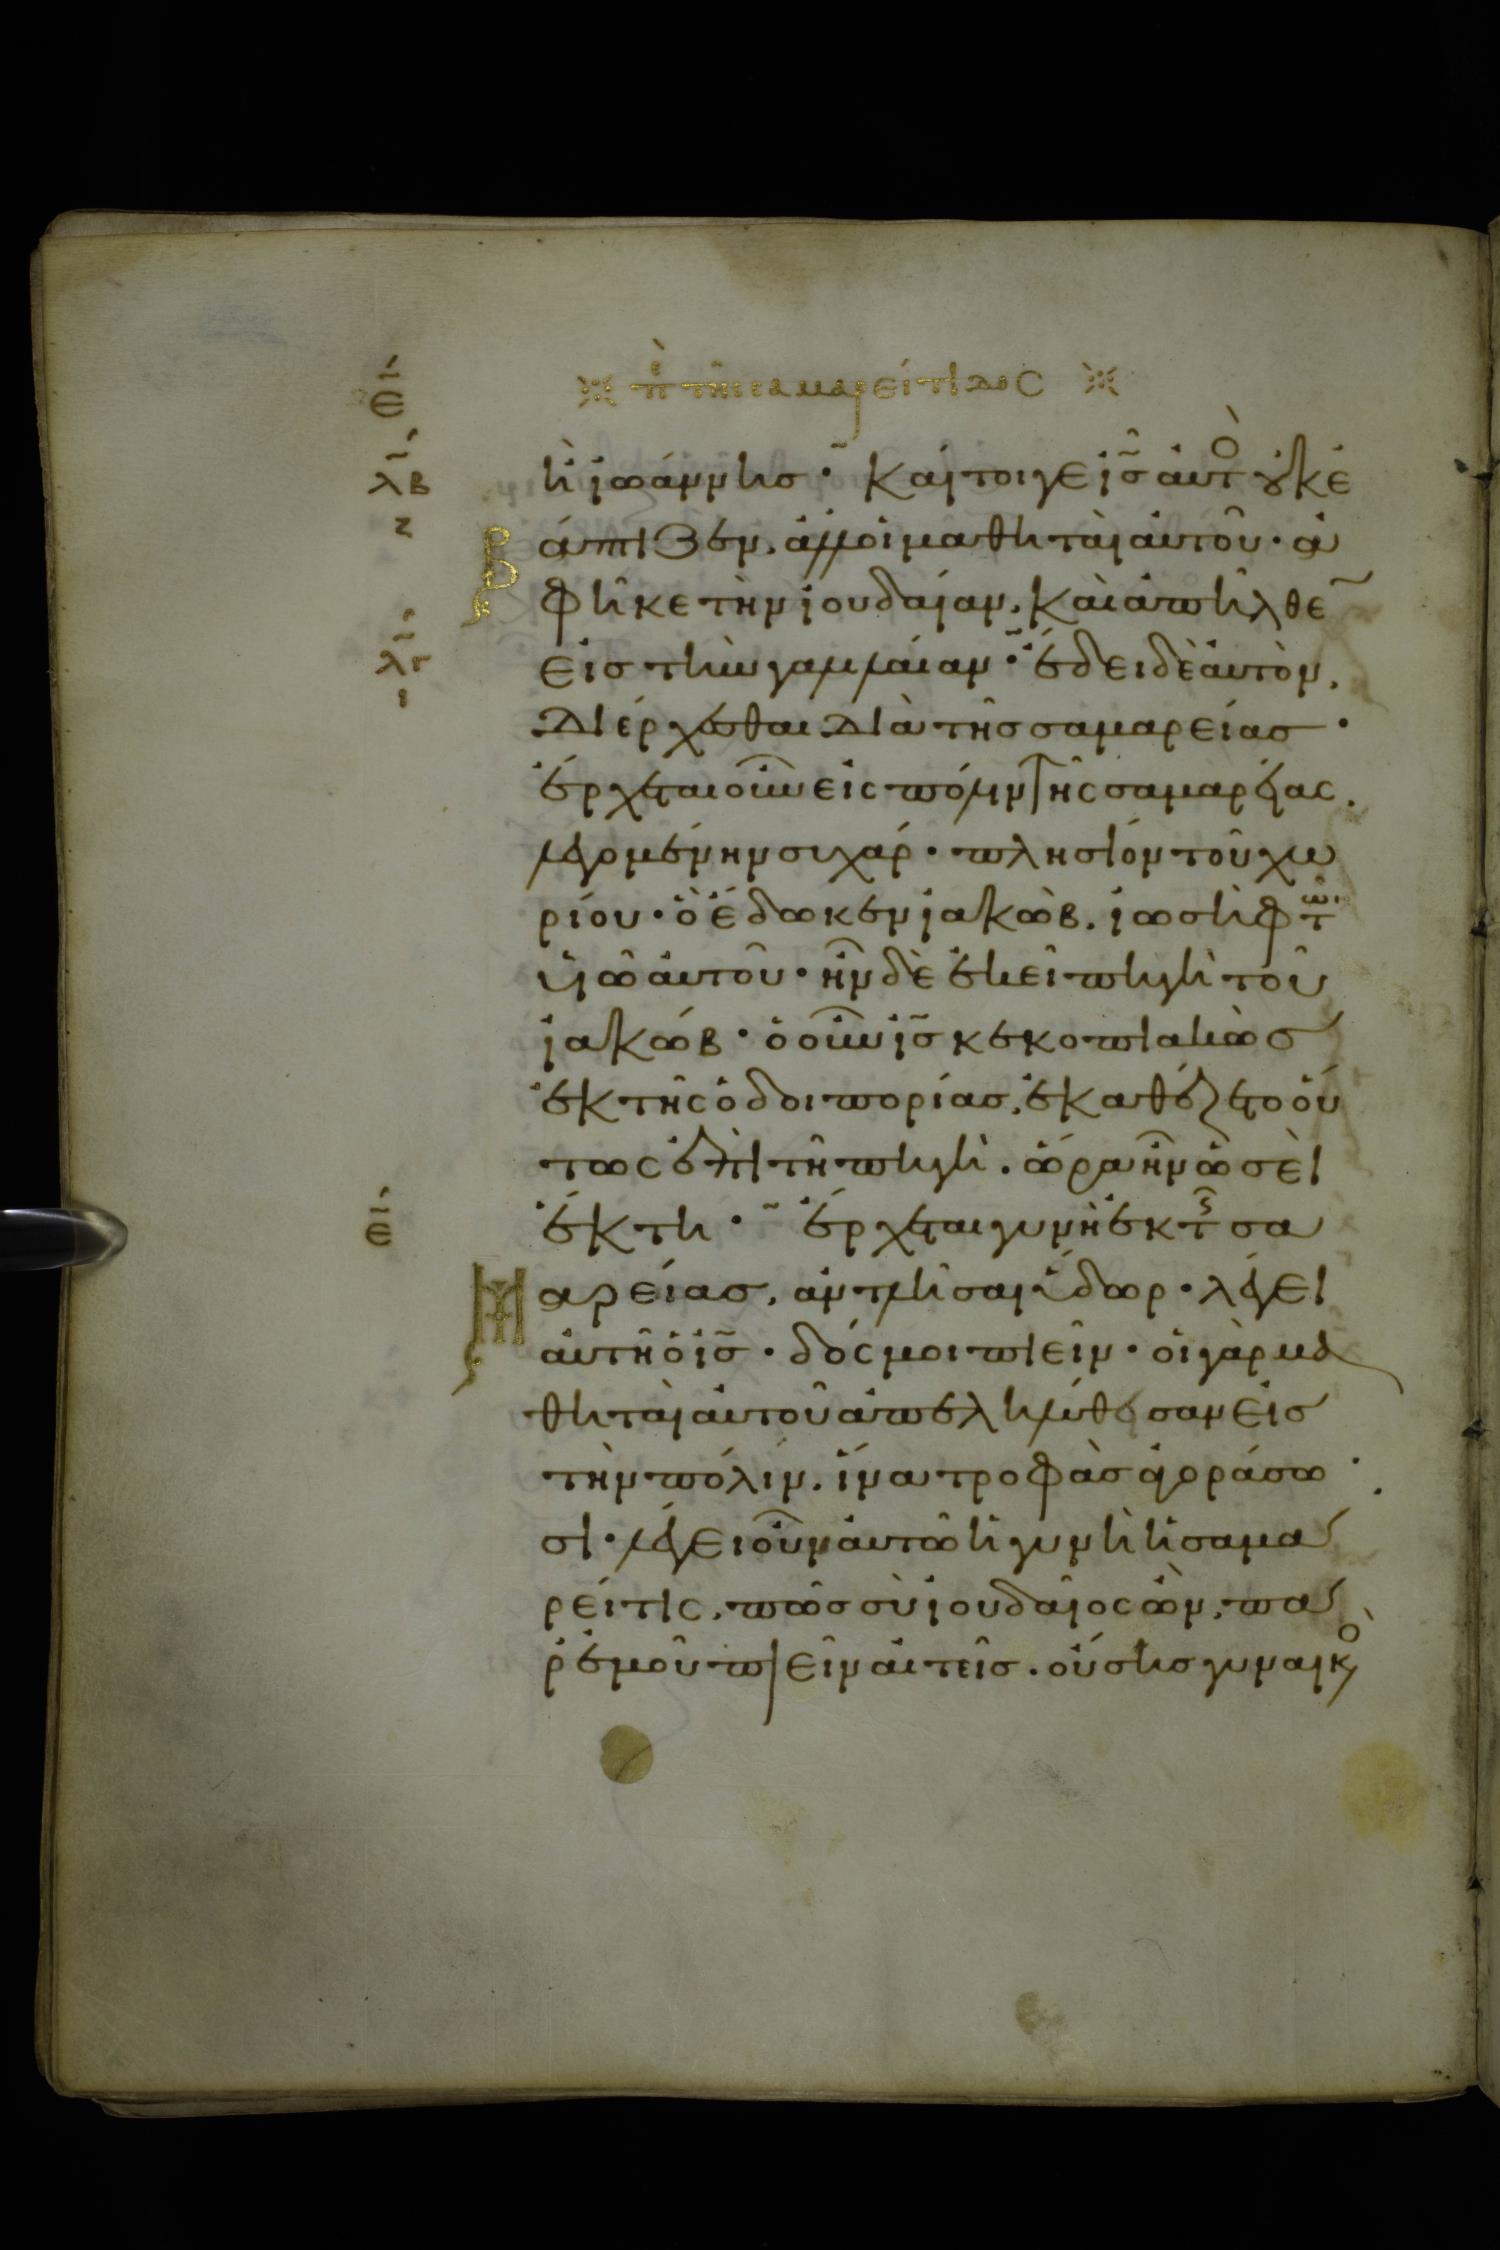 πε τῆς σαμαρείτιδος
ἢ ἰωάννης· καίτοιγε ἰς αὐτὸ οὐκ ἐ
βάπτιζεν, ἀλλ οἱ μαθηταὶ αὐτοῦ· ἀ
φῆκε τὴν ἰουδαίαν, καὶ ἀπῆλθε
εἰς τὴν γαλιλαίαν· ἔδει δὲ αὐτὸν,
διέρχεσθαι διὰ τῆς σαμαρείας·
ἔρχεται οὖν εἰς πόλιν τῆς σαμαρείας,
λεγομένην σιχάρ· πλησίον τοῦ χω
ρίου· ὃ ἔδωκεν ἰακὼβ, ἰωσὴφ τῶ
υἱῶ αὐτοῦ· ἦν δὲ ἐκεῖ πηγὴ τοῦ
ἰακώβ· ὁ οὖν ἰς κεκοπιακὼς
ἐκ τῆς ὁδοιπορίας, ἐκαθέζετο οὕ
τως ἐπὶ τῆ πηγῆ. ὥρα ἦν ὡσεὶ
ἕκτη· ἔρχεται γυνὴ ἐκ τῆς σα
μαρείας, ἀντλῆσαι ὕδωρ· λέγει
αὐτῆ ὁ ἰς· δός μοι πιεῖν· οἱ γὰρ μα
θηταὶ αὐτοῦ ἀπεληλύθεισαν εἰς
τὴν πόλιν, ἵνα τροφὰς ἀγοράσω
σι· λέγει οὖν αὐτῶ ἡ γυνὴ ἡ σαμα
ρεῖτις, πῶς σὺ ἰουδαῖος ὢν, πα
ρ ἐμοῦ πιεῖν αἰτεῖς. οὔσης γυναικὸ
ε
λβ
ζ
λγ
ι
ε